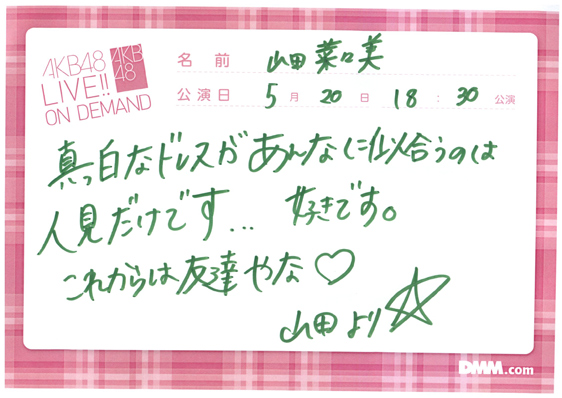 AKB48
LIVE!!
ON DEMAND
AKB
48
名 前 山田菜々美
公演日 5月20日 18:30公演
真っ白なドレスがあんなに似合うのは
人見だけです... 好きです。
これからは友達やな♡
山田より☆
DMM.com